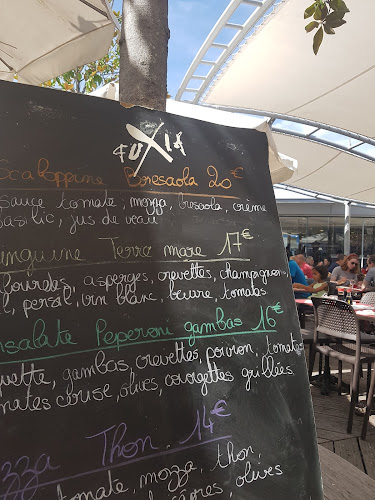 FUXIA
Scaloppine Boresaola 20€
sauce tomate, mozza, bresaola, crème
basilic, jus de veau
Linguine Terra mare 17€
asperges, crevettes, champignon
persil, vin blanc, beurre, tomates
Insalate Peperoni gambas 16€
gambas, crevettes, poivron, tomates
tomates cerise, olives, courgettes grillées
Pizza Thon 14€
tomate, mozza, thon,
câpres olives